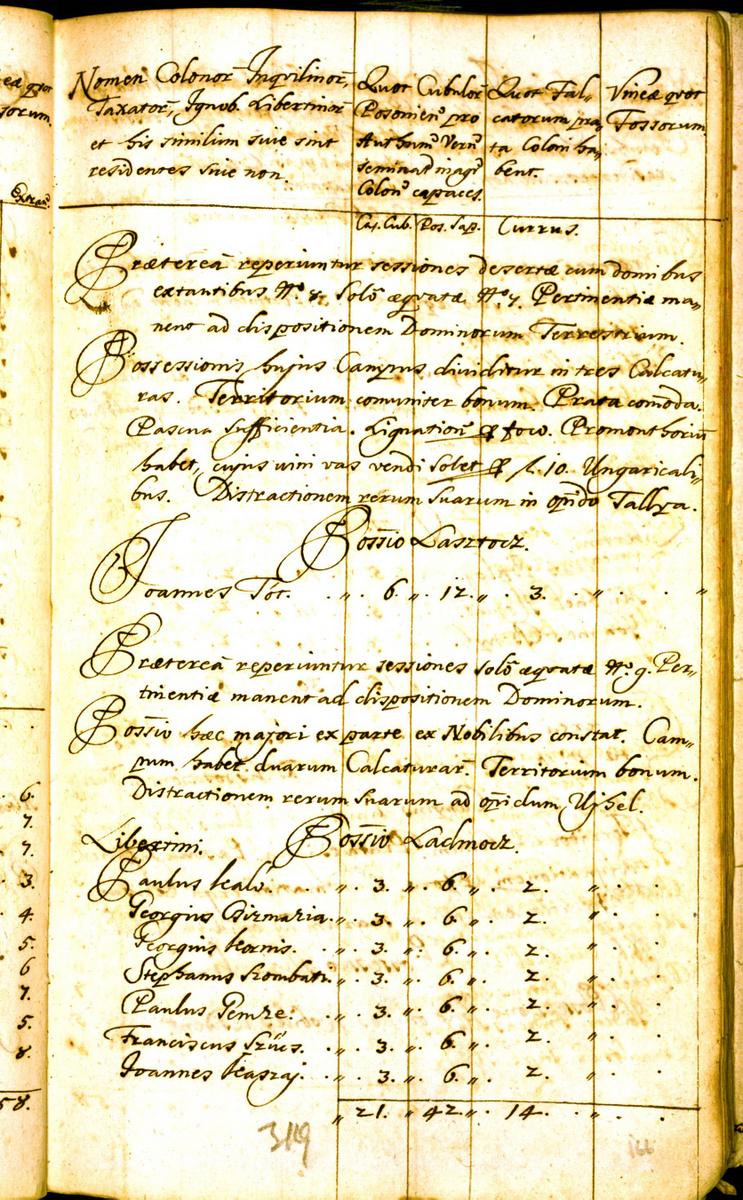 Nomen Colonor̃, Inqvilinor̃,
Taxator̃, Ignob. Libertinor̃
et his similium sive sint
residentes sive non.
Quot Cubulor̃
Posonien̄ pro
Authum̄ Vern̄
seminat̄ in agr̄
Colon̄ capaces.
Quot Fal-
catorum pra-
ta Coloni ha-
bent.
Vineæ qvot
Fossorum.
Cas. Cub. Pos. Sap. Currus.
Prætereà reperiuntur sessiones desertæ cum domibus
extantibus Nº 8. Solō æqvatæ Nº 7. Pertinentiæ ma-
nent ad dispositionem Dominorum Terrestrium.
Possessionis hujus Campus dividitur in tres Calcatu-
ras. Territorium comuniter bonum. Prata com̄oda.
Pascua sufficientia. Lignation̄ foco. Promonthoriū
habet, cujus vini vas vendi solet f. 10. Ungaricali-
bus. Distractionem rerum suarum in opido Tallya.
Possio Lasztocz.
Joannes Tót. „ 6. „ 12. „ 3. „ „
Prætereà reperiuntur sessiones solō æqvatæ Nº 9. Per-
tinentiæ manent ad dispositionem Dominorum.
Possio hæc majori ex parte ex Nobilibus constat. Cam-
pum habet duarum Calcaturar̃. Territorium bonum.
Distractionem rerum suarum ad opidum Ujhel.
Libertini. Possio Ladmocz.
Paulus Kalo. „ 3. „ 6. „ 2. „
Georgius Csizmazia. „ 3. „ 6. „ 2. „
Georgius Kornis. „ 3. „ 6. „ 2. „
Stephanus Szombati. „ 3. „ 6. „ 2. „
Paulus Gemze. „ 3. „ 6. „ 2. „
Franciscus Szűcs. „ 3. „ 6. „ 2. „
Joannes Kaszaj. „ 3. „ 6. „ 2. „
„ 21. „ 42. „ 14. „
319
166
qvot
sorum.
Extran̄.
6.
7.
7.
3.
4.
5.
6
7.
5.
8.
58.